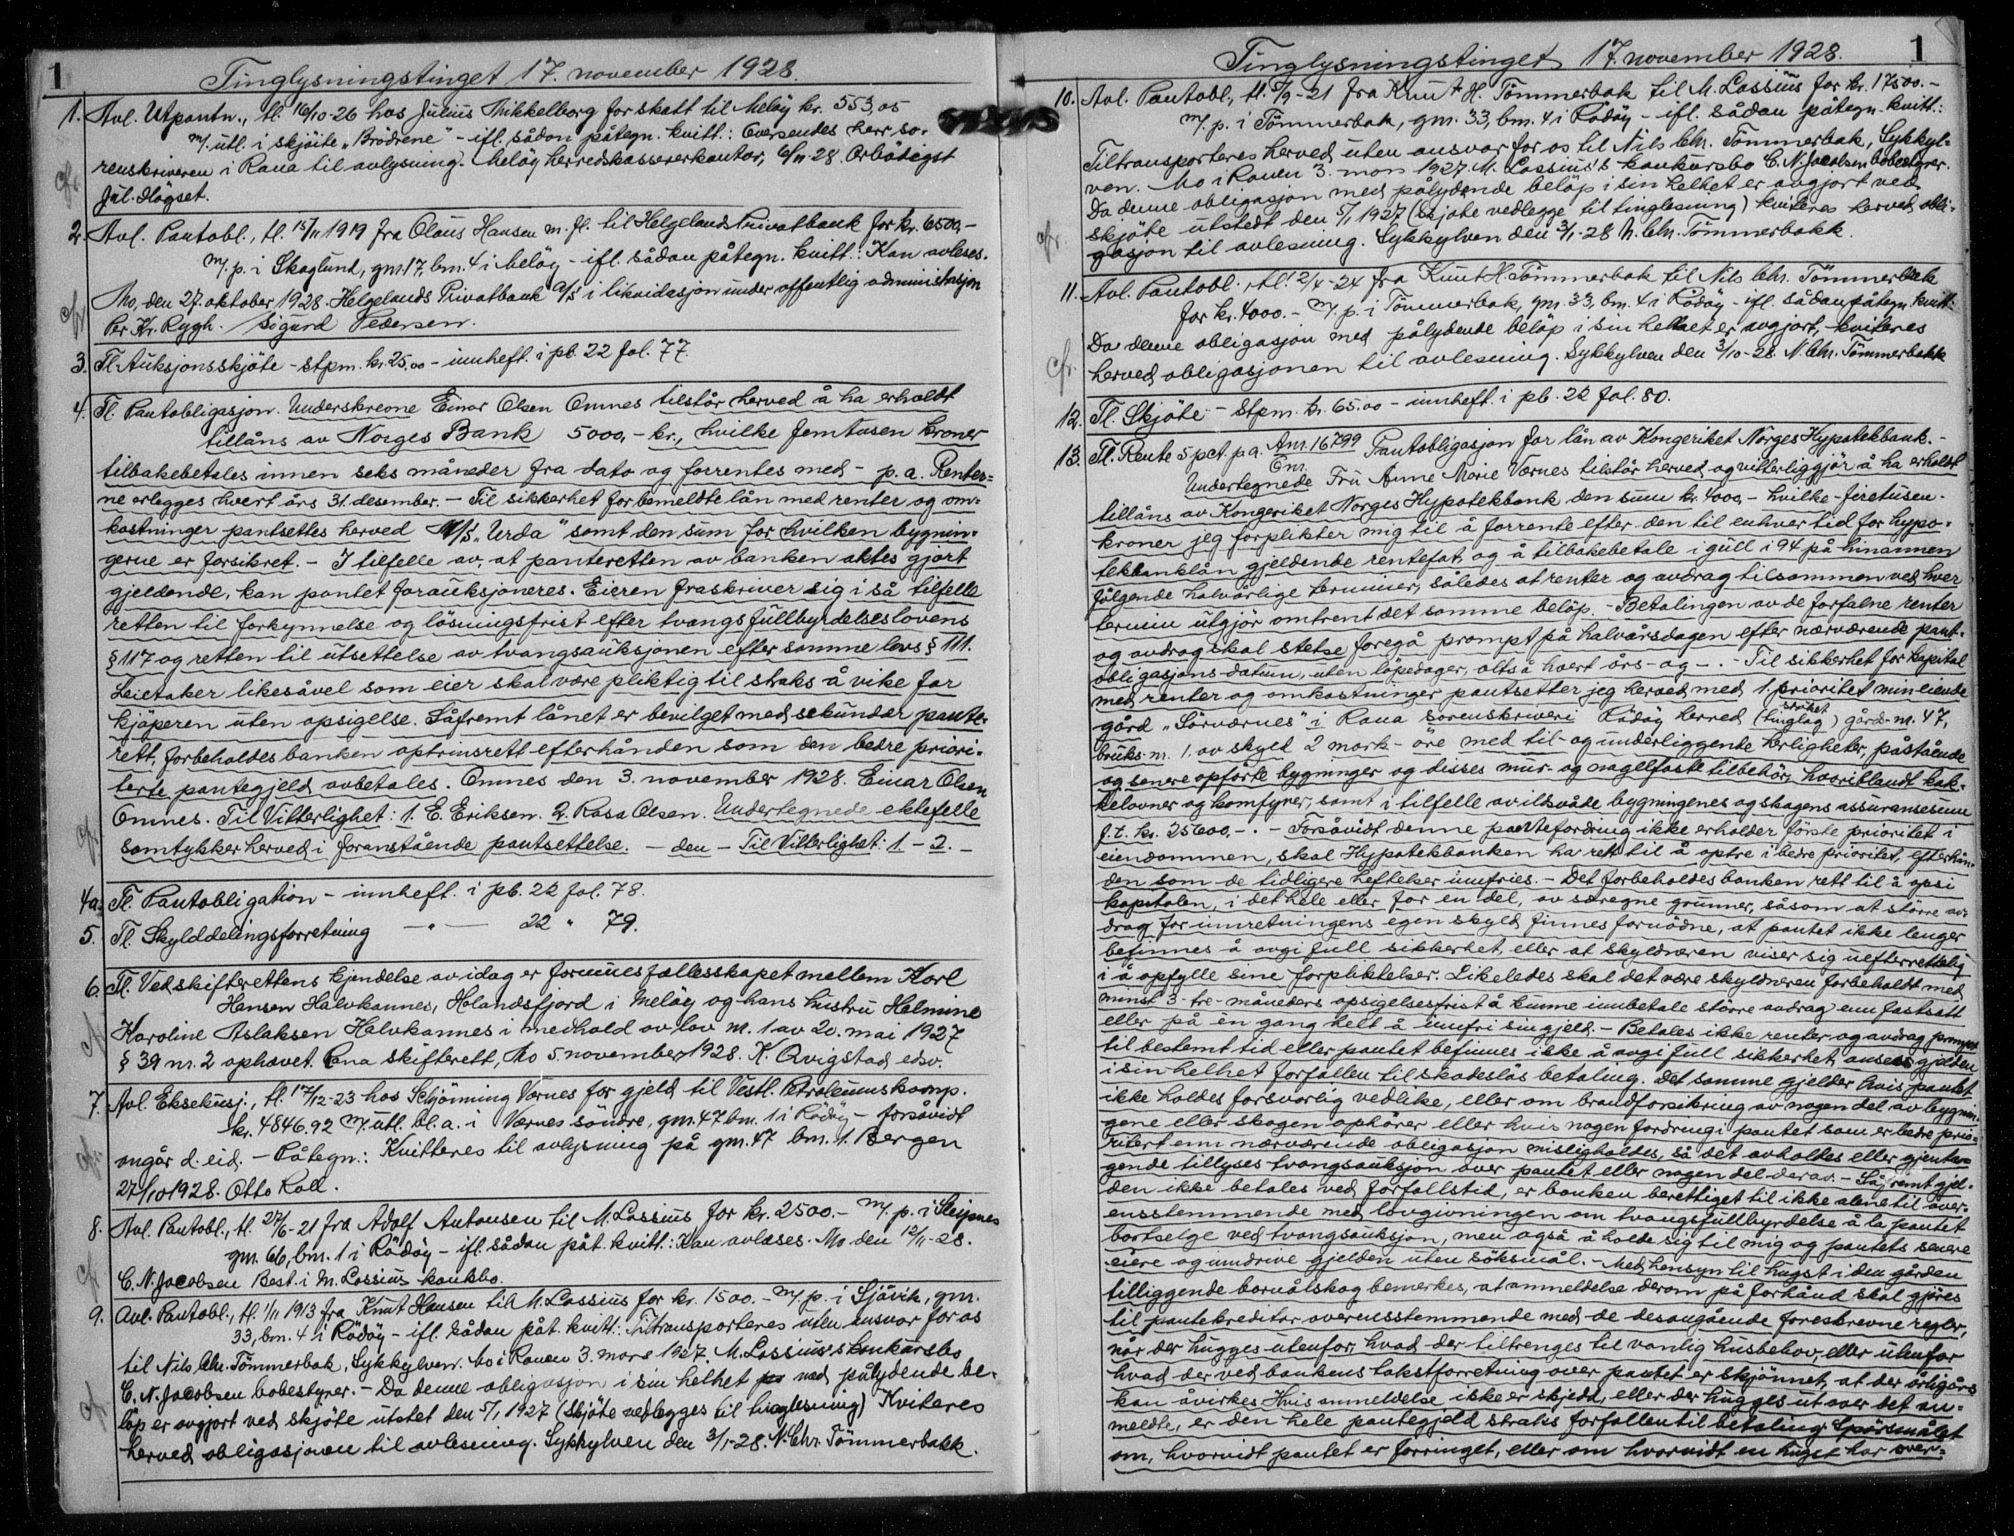 1
Tinglysningstinget 17. november 1928.
1. Avl. Utpantn., tl. 16/10-26 hos Julius Mikkelborg for skatt til Meløy kr. 553,05
m/utl. i skjøite „Brødrene" - ifl. sådan påtegn. kvitt.: Oversendes herr so-
renskriveren i Rana til avlysning. Meløy herredskassererkontor, 6/11-28 Ærbødigst
Jul. Høgset.
2. Avl. Pantobl., tl. 15/11 1919 fra Olaus Hansen m. fl. til Helgelands Privatbank for kr. 6500,-
m/p. i Skoglund, gnr. 17, bnr. 4 i Meløy - ifl. sådan påtegn. kvitt.: Kan avleses.
Mo, den 27. oktober 1928. Helgelands Privatbank A/S i likvidasjon under offentlig administrasjon
Per Kr. Rygh. / Sigurd Pedersen.
3. Tl. Auksjonsskjøte - stpm. kr. 25,00 - innheft. i pb. 22 fol. 77.
4. Tl. Pantobligasjon. Underskrevne Einar Olsen Omnes tilstår herved å ha erholdt
tillåns av Norges Bank 5000,- kr., hvilke femtusen kroner
tilbakebetales innen seks måneder fra dato og forrentes med - p. a. Renter-
ne erlegges hvert års 31. desember. - Til sikkerhet for bemeldte lån med renter og om-
kostninger pantsettes herved M/S „Urda" samt den sum for hvilken bygnin-
gerne er forsikret. - I tilfelle av, at panteretten av banken aktes gjort
gjeldende, kan pantet forauksjoneres. Eieren fraskriver sig i så tilfelle
retten til forkynnelse og løsningsfrist efter tvangsfullbyrdelseslovens
§ 117 og retten til utsettelse av tvangsauksjonen efter samme lovs § 111.
Leietaker likesåvel som eier skal være pliktig til straks å vike for
kjøperen uten opsigelse. Såfremt lånet er bevilget med sekundær pante-
rett, forbeholdes banken optrinsrett efterhånden som den bedre priori-
terte pantegjeld avbetales. Omnes den 3. november 1928. Einar Olsen
Omnes. Til Vitterlighet: 1. E. Eriksen. 2. Rosa Olsen. Undertegnede ektefelle
samtykker herved i foranstående pantsettelse. - den - Til Vitterlighet: 1. - 2. -
4a. Tl. Pantobligation - innheft. i pb. 22 fol. 78.
5. Tl. Skylddelingsforretning - " - 22 " 79.
6. Tl. Ved skifterettens kjendelse av idag er formuesfællesskapet mellem Karl
Hansen Halvkannes, Holandsfjord i Meløy og hans hustru Helmine
Karoline Aslaksen Halvkannes i medhold av lov nr. 1 av 20. mai 1927
§ 39 nr. 2 ophævet. Rana skifterett, Mo 5. november 1928. K. Qvigstad, edsv.
7. Avl. Eksekusj., tl. 17/12-23 hos Schjønning Værnes for gjeld til Vestl. Petroleumskomp.
kr. 4846.92 m/utl. bl. a. i Værnes søndre, gnr. 47 bnr. 1 i Rødøy - forsåvidt
angår d. eid. - Påtegn.: Kvitteres til avlysning på gnr. 47 bnr. 1. Bergen
27/10 1928. Otto Roll.
8. Avl. Pantobl., tl. 27/6-21 fra Adolf Antonsen til M. Lossius for kr. 2500.- m/p. i Sleipnes
gnr. 66, bnr. 1 i Rødøy - ifl. sådan påt. kvitt.: Kan avlæses. Mo den 12/11-28.
C. N. Jacobsen Best. i M. Lossius konkbo.
9. Avl. Pantobl., tl. 1/11 1913 fra Knut Hansen til M. Lossius for kr. 1500.- m/p. i Sjåvik, gnr.
33, bnr. 4 i Rødøy - ifl. sådan påt. kvitt.: Tiltransporteres uten ansvar for os
til Nils Chr. Tømmerbak, Sykkylven. Mo i Ranen 3. mars 1927. M. Lossius's konkursbo
C. N. Jacobsen bobestyrer. - Da denne obligasjon i sin helhet med pålydende be-
løp er avgjort ved skjøte utstet den 5/1 1927 (Skjøte vedlegges til tinglesning) Kviteres
herved obligasjonen til avlesning. Sykkylven den 3/1-28. N. Chr. Tømmerbakk.
Tinglysningstinget 17. november 1928.
1
10. Avl. Pantobl., tl. 5/9-21 fra Knut H. Tømmerbak til M. Lossius for kr. 17500.-
m/p. i Tømmerbak, gnr. 33, bnr. 4 i Rødøy - ifl. sådan påtegn. kvitt.:
Tiltransporteres herved uten ansvar for os til Nils Chr. Tømmerbak, Sykkyl-
ven. Mo i Ranen 3. mars 1927. M. Lossius's konkursbo C. N. Jacobsen bobestyrer.
Da denne obligasjon med pålydende beløp i sin helhet er avgjort ved
skjøte utstedt den 5/1 1927 (Skjøte vedlegge til tinglesning) kviteres herved obli-
gasjon til avlesning. Sykkylven den 3/1-28 N. Chr. Tømmerbakk.
11. Avl. Pantobl., tl. 2/4-24 fra Knut H. Tømmerbak til Nils Chr. Tømmerbak
for kr. 4000.- m/p. i Tømmerbak, gnr. 33, bnr. 4 i Rødøy - ifl. sådan påtegn. kvitt:
Da denne obligasjon med pålydende beløp i sin helhet er avgjort, kviteres
herved obligasjonen til avlesning. Sykkylven den 3/10-28. N. Chr. Tømmerbakk
12. Tl. Skjøte - Stpm. kr. 65.00 - innheft. i pb. 22 fol. 80.
13. Tl. Rente 5 pct. p. a. Anr. 16799 Pantobligasjon for lån av Kongeriket Norges Hypotekbank. -
Enr.
Undertegnede Fru Anne Marie Værnes tilstår herved og vitterliggjør å ha erholdt
tillåns av Kongeriket Norges Hypotekbank den sum kr. 4000,- hvilke - firetusen -
kroner jeg forplikter mig til å forrente efter den til enhver tid for hypo-
tekbanklån gjeldende rentefot, og å tilbakebetale i gull i 94 på hinannen
følgende halvårlige terminer, således at renter og avdrag tilsammen ved hver
termin utgjør omtrent det samme beløp. - Betalingen av de forfalne renter
og avdrag skal stetse foregå prompt på halvårsdagen efter nærværende pant-
obligasjons datum, uten løpedager, altså hvert års - og - . - Til sikkerhet for kapital
med renter og omkostninger pantsetter jeg herved med 1. prioritet min eiende
gård „Sørværnes" i Rana sorenskriveri Rødøy herred (tinglag) gårds-nr. 47,
bruks-nr. 1. av skyld 2 mark - øre med til- og underliggende herligheter, påstående
og senere opførte bygninger og disses mur- og nagelfaste tilbehør, hvoriblandt kak-
kelovner og komfyrer, samt i tilfelle av ildsvåde bygningenes og skogens assuransesum
f. t. kr. 25600,- . - Forsåvidt denne pantefordring ikke erholder første prioritet i
eiendommen, skal Hypotekbanken ha rett til å optre i bedre prioritet, efterhån-
den som de tidligere heftelser innfries. - Det forbeholdes banken rett til å opsi
kapitalen, i det hele eller for en del, av særegne grunner, såsom at større av-
drag for innretningens egen skyld finnes fornødne, at pantet ikke lenger
befinnes å avgi full sikkerhet, eller at skyldneren viser sig uefterrettelig
i å opfylle sine forpliktelser. Likeledes skal det være skyldneren forbeholdt med
minst 3 - tre - måneders opsigelsesfrist å kunne innbetale større avdrag enn fastsatt
eller på én gang helt å innfri sin gjeld. - Betales ikke renter og avdrag prompt
til bestemt tid eller pantet befinnes ikke å avgi full sikkerhet, ansees gjelden
i sin helhet forfallen til skadesløs betaling. Det samme gjelder hvis pantet
ikke holdes forsvarlig vedlike, eller om brandforsikring av nogen del av bygnin-
gene eller skogen ophører eller hvis nogen fordring i pantet som er bedre prio-
ritert enn nærværende obligasjon misligholdes, så det avholdes eller gjentag-
gende tillyses tvangsauksjon over pantet eller nogen del derav. - Såfremt gjel-
den ikke betales ved forfallstid, er banken berettiget til ikke alene til over-
ensstemmende med lovgivningen om tvangsfullbyrdelse å la pantet
bortselge ved tvangsauksjon, men også å holde sig til mig og pantets senere
eiere og inndrive gjelden uten søksmål. - Med hensyn til hugst i den gården
tilliggende barnålskog bemerkes, at anmeldelse derom på forhånd skal gjøres
til pantekreditor overensstemmende med de desangående foreskrevne regler,
når der hugges utenfor, hvad der tiltrenges til vanlig husbehov, eller utenfor
hvad der ved bankens takstforretning over pantet er skjønnet, at der årligårs
kan avirkes Hvis anmeldelse ikke er skjedd, eller der hugges ut over det an-
meldte, er den hele pantegjeld straks forfallen til betaling. Spørsmålet
om, hvorvidt pantet er forringet, eller om hvorvidt en hugst har over-